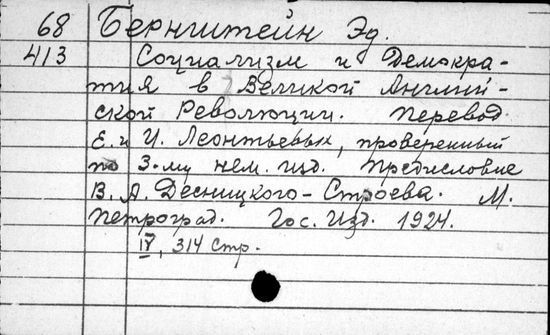 68 Бернштейн Эд.
413 Социализм и Демокра-
тия в Великой Англий-
ской Революции. Перевод
Е. и И. Леонтьевых, проверенный
по 3-му нем. изд. Предисловие
В. А. Десницкого-Строева. М.
Петроград. Гос. Изд. 1924.
IV, 314 стр.